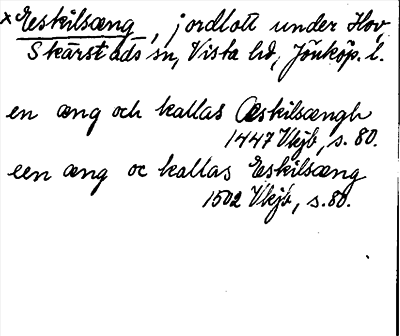 × Eskilsæng, jordlott under Hov,
Skärstads sn, Vista hd, Jönköp. l.
en æng och kallas Æskilsængh
1447 Vkjb, s. 80.
een æng oc kallas Eskilsæng
1502 Vkjb, s. 80.